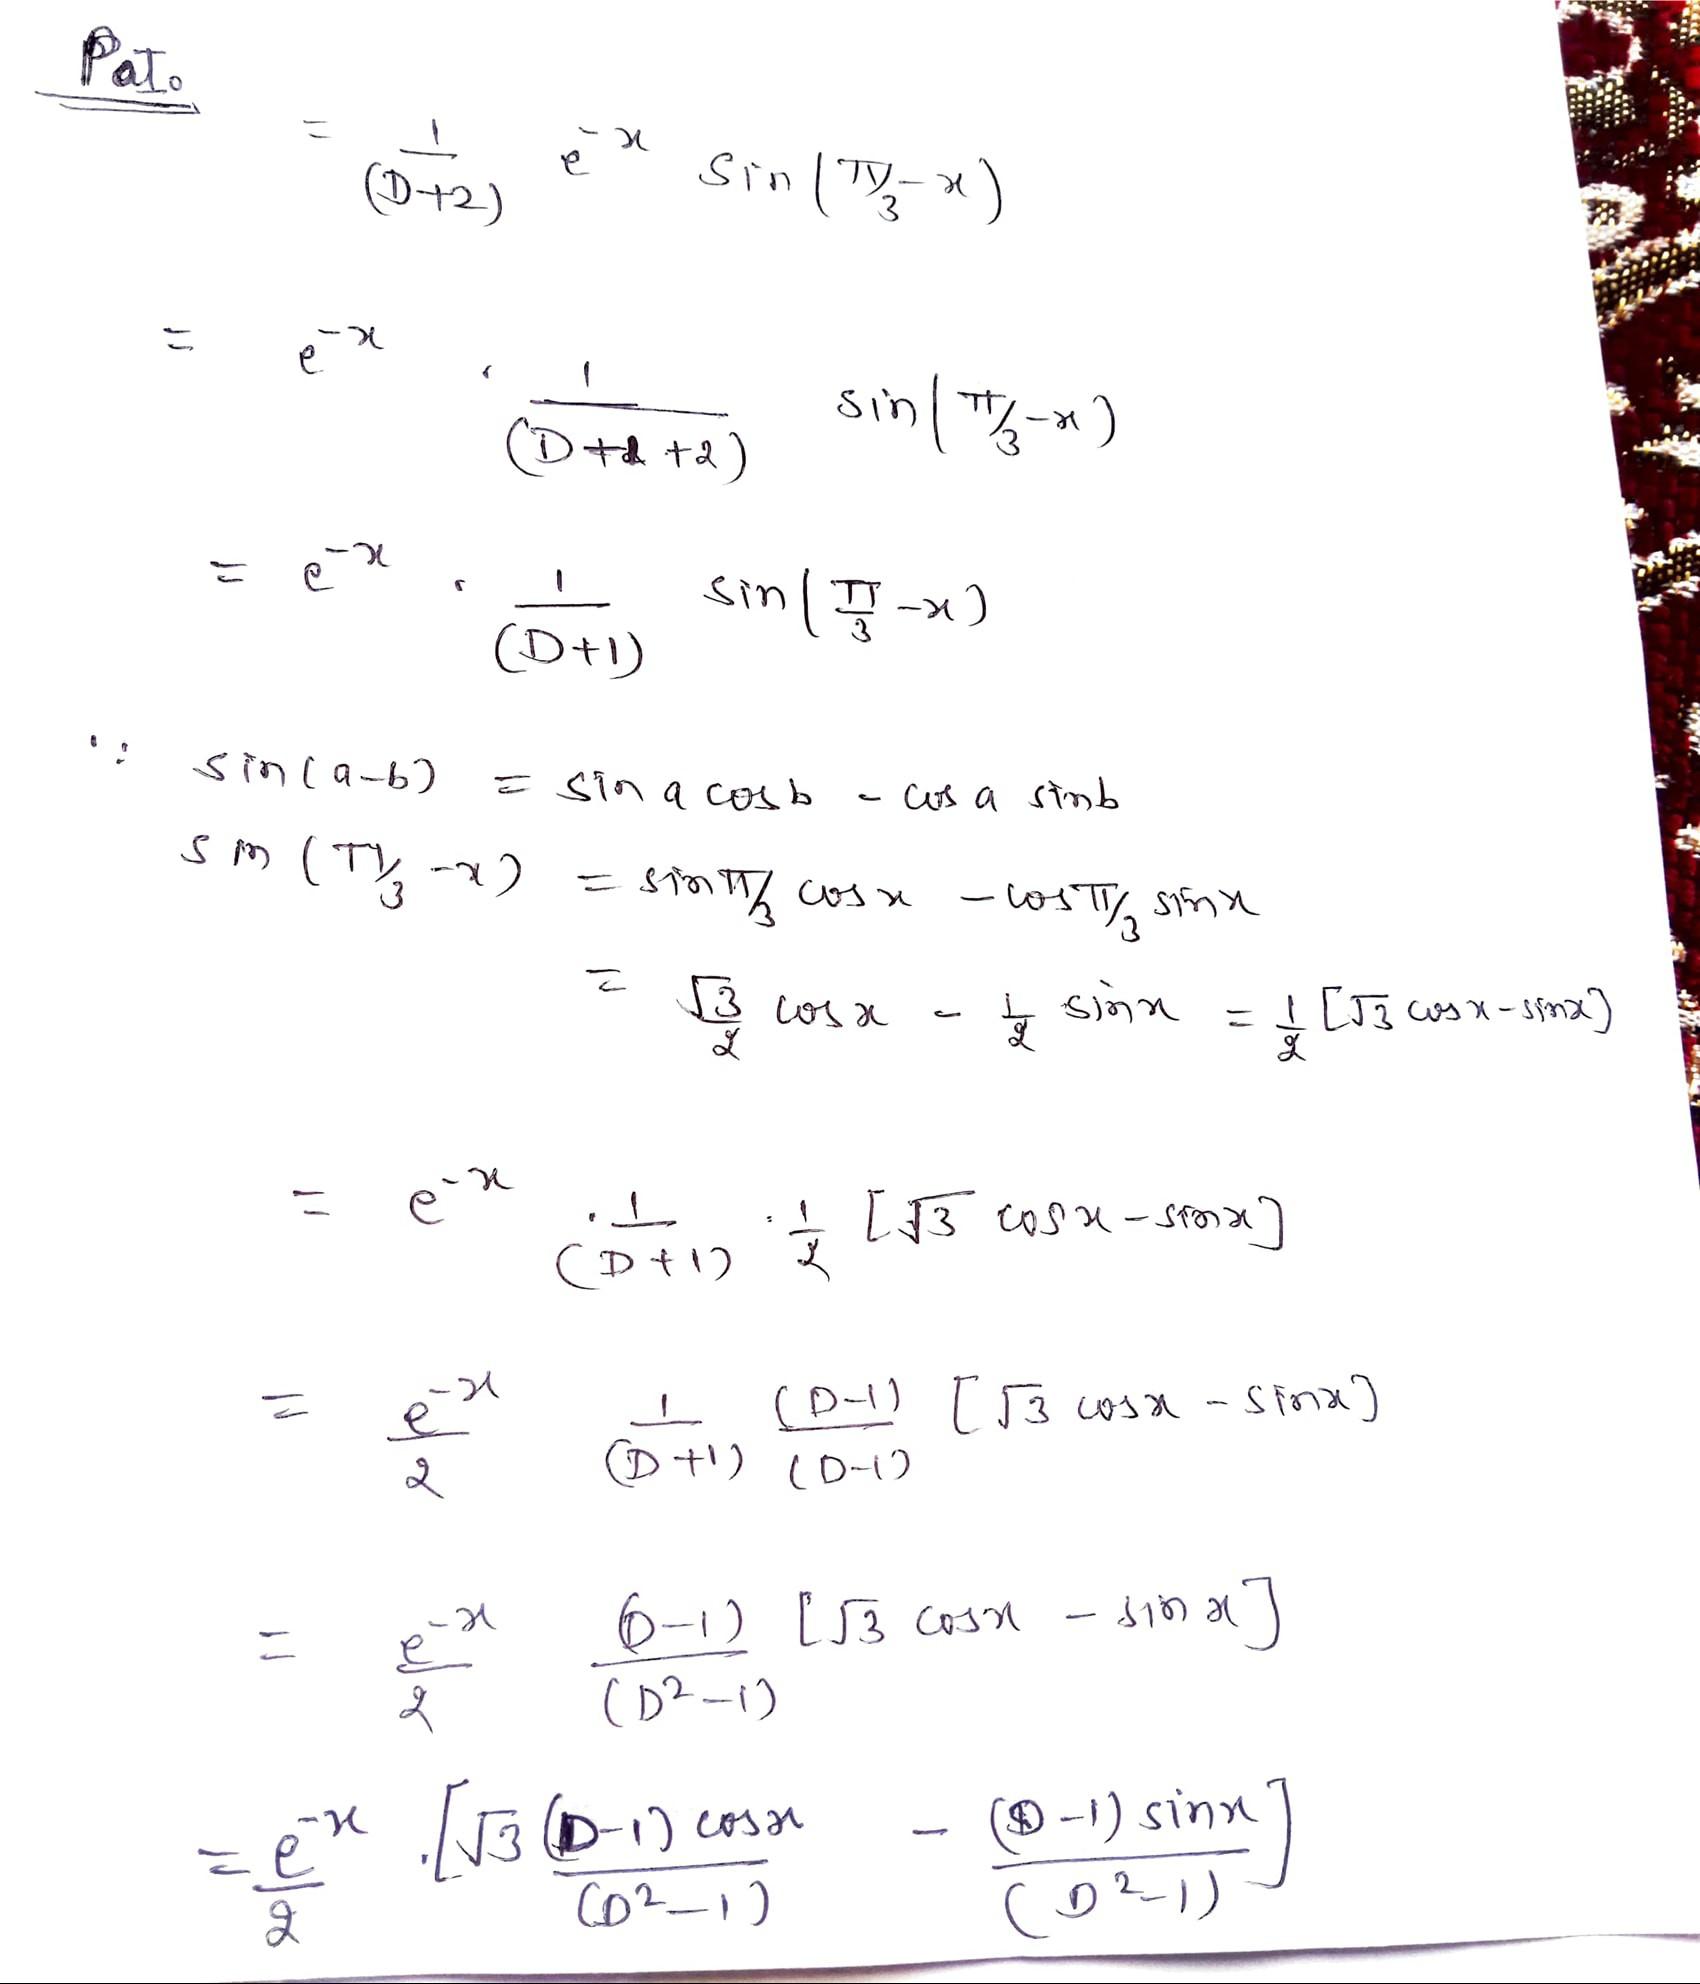 PoI.
= 1/(D+2) e^-x sin(π/3-x)
= e^-x · 1/(D+1+2) sin(π/3-x)
= e^-x · 1/(D+1) sin(π/3-x)
∵ sin(a-b) = sin a cos b - cos a sin b
sin(π/3-x) = sin π/3 cos x - cos π/3 sin x
= √3/2 cos x - 1/2 sin x = 1/2 [√3 cos x - sin x]
= e^-x · 1/(D+1) · 1/2 [√3 cos x - sin x]
= e^-x/2 1/(D+1) (D-1)/(D-1) [√3 cos x - sin x]
= e^-x/2 (D-1)/(D²-1) [√3 cos x - sin x]
= e^-x/2 · [√3 (D-1) cos x/(D²-1) - (D-1) sin x/(D²-1)]